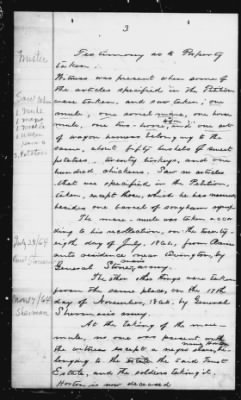 3
Testimony as to Property
taken.
Witness was present when some of
the articles specified in the Petition
were taken, and saw taken; one
mule, one sorrel mare, one horse
mule, one two-horse wagon, and one set
of wagon harness belonging to the
same, about fifty bushels of sweet
potatoes, twenty turkeys, and one
hundred chickens. Saw no articles
that are specified in the Petition,
taken, except those, which he has named,
besides one barrel of sorghum syrup.
The mare-mule was taken accor-
ding to his recollection, on the twenty-
eighth day of July, 1864, from
residence near Covington, by
General Stoneman's army.
The other things were taken
from the same place, on the 17th
day of November, 1864, by General
Sherman's army.
At the taking of the mare-
mule, no one was present with
the witness except a negro slave, be-
longing to the said Trust
Estate, and the soldiers taking it.
Horton is now deceased
Trustee
Saw taken
1 mule
1 wagon
Potatoes
July 28/64
Nov 17/64
Sherman